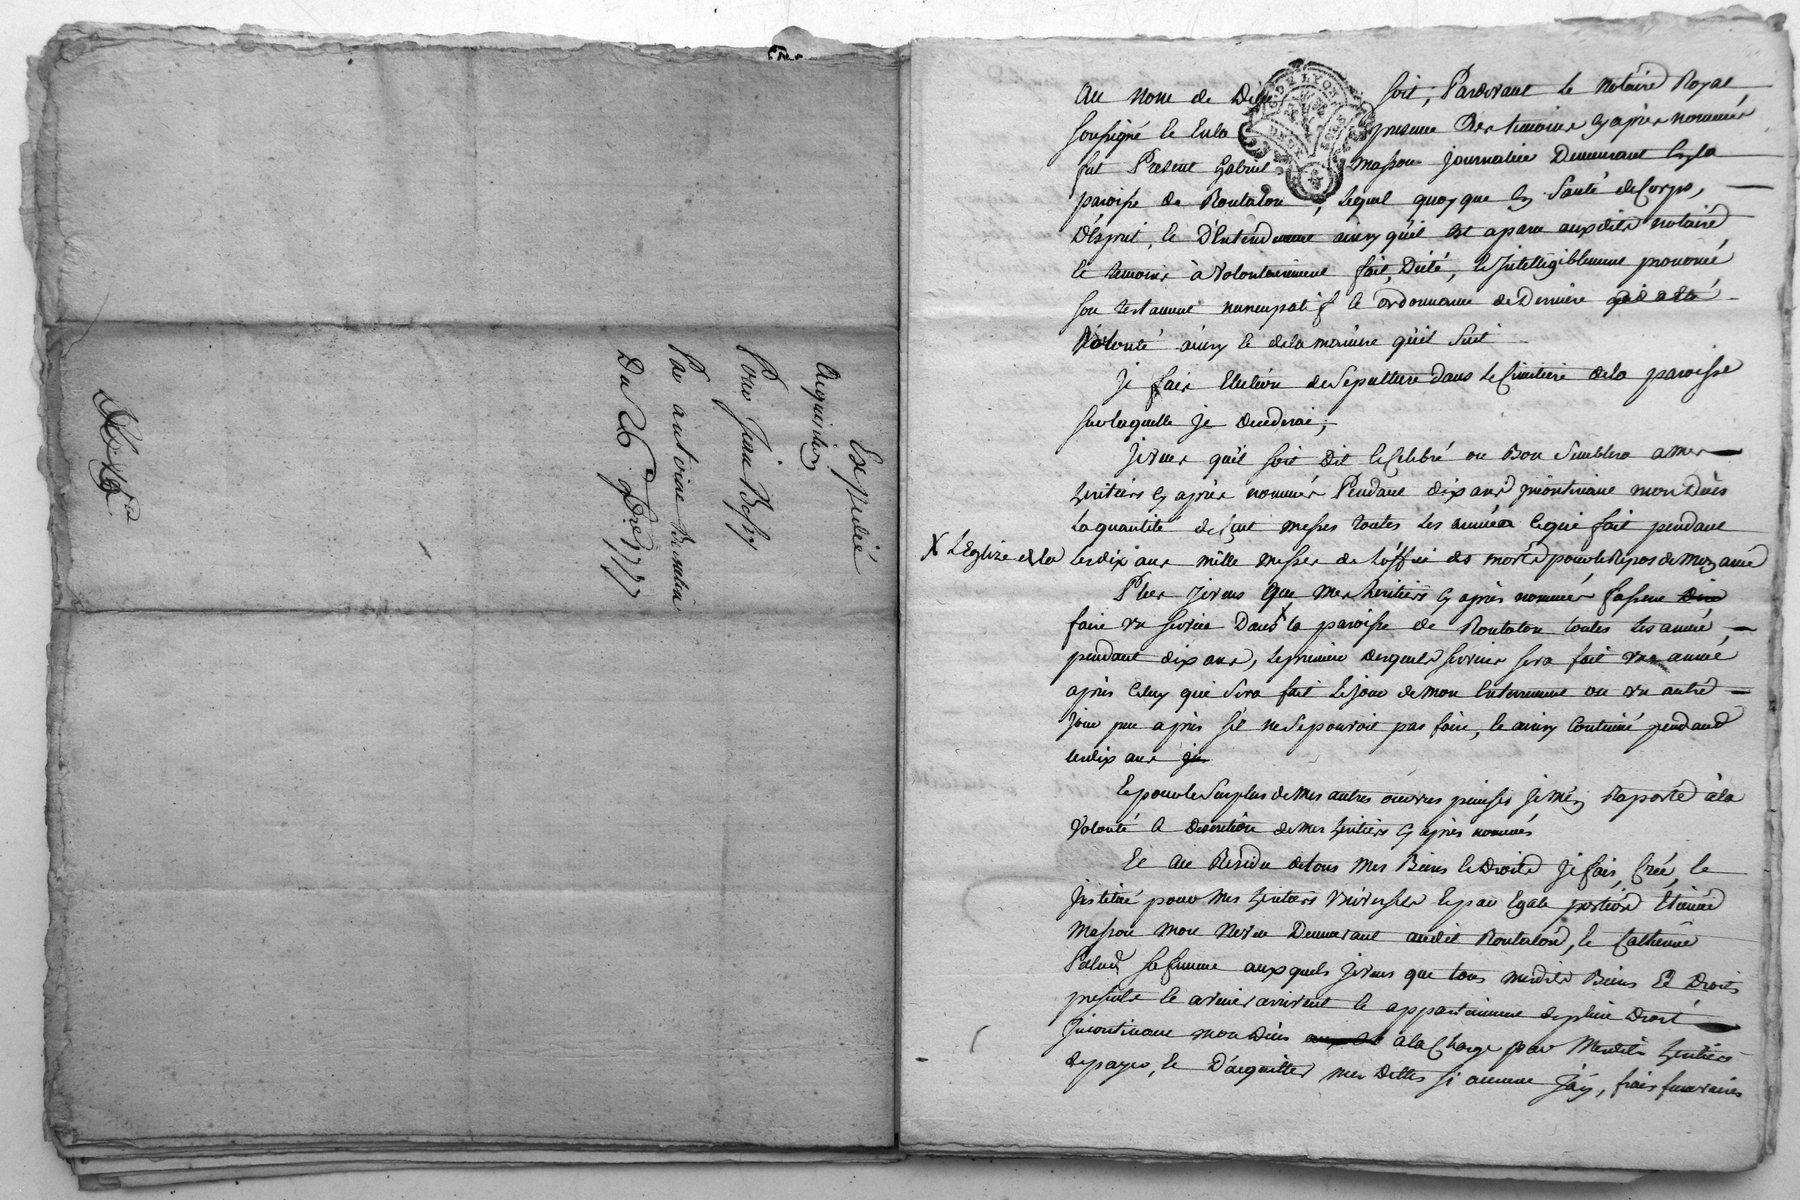 Expédié
Acquisition
Pour Jean Bessy
De antoine
Du 26 9bre 1777
Au nom de Dieu soit, Pardevant le notaire Royal
soussigné et en la presence Des temoins cy après nommés
fut Present Gabriel masson journalier Demeurant en la
paroisse de Rontalon, lequel quoy que en Santé de Corps,
D'Esprit, et D'Entendement ainsy qu'il Est aparu auxdits notaire
et temoins à volontairement fait, Dicté, et Intelligiblement prononcé
son testament nuncupatif et ordonnance de Derniere
Volonté ainsy et de la maniere qu'il suit
Je fais Election de Sepulture dans le Cimetiere de la paroisse
sur laquelle je decederai;
Je veux qu'il soit Dit et Celebré ou Bon Semblera a mes
heritiers cy après nommés Pendant dix ans incontinant mon Décès
la quantité de Cent messes toutes les années ce qui fait pendant
les dix ans mille messes de L'office des morts pour le Repos de mon ame
X L'Eglize de la
Plus Je veux que mes heritiers cy après nommés fassent
faire un service Dans X la paroisse de Rontalon toutes les année,
pendant dix ans, le premier desquels services sera fait une année
après Celuy qui sera fait le jour de mon Enterrement ou un autre
jour peu après s'il ne se pouvoit pas faire, et ainsy Continué pendant
les dix ans
Et pour le Surplus de mes autres œuvres pieuses Je m'en Raporte à la
Volonté & discretion de mes heritiers cy après nommés
Et au Residu de tous mes Biens et Droits Je fais, Créé, et
Institué pour mes heritiers universels et par Egale portions Etienne
Masson mon Neveu Demeurant audit Rontalon, et Catherine
sa femme auxquels je veux que tous mesdits Biens Et Droits
presents et avenir arrivent et appartiennent de plein Droit
Incontinant mon Décès à la Charge par Mesdits heritiers
de payer, et D'acquitter mes dettes si aucune J'ay, frais funeraires